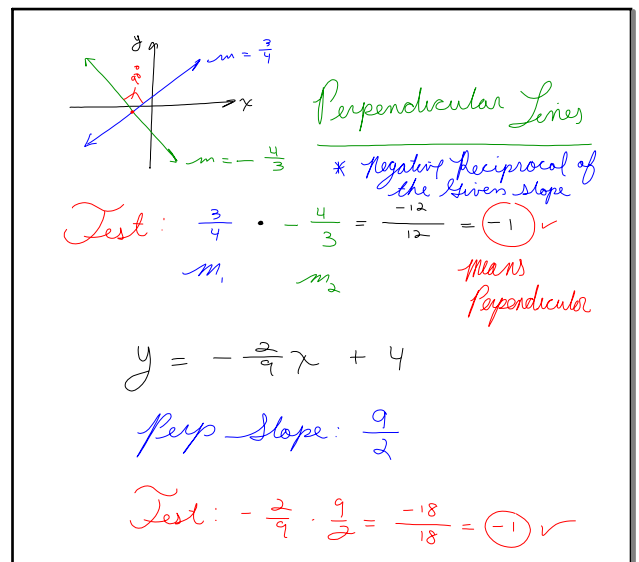 y
m = 3/4
90°
x
m = - 4/3
Perpendicular Lines
* Negative Reciprocal of
the Given slope
Test: 3/4 · - 4/3 = -12/12 = -1 ✓
m₁ m₂
means
Perpendicular
y = - 2/9 x + 4
Perp Slope: 9/2
Test: - 2/9 · 9/2 = -18/18 = -1 ✓